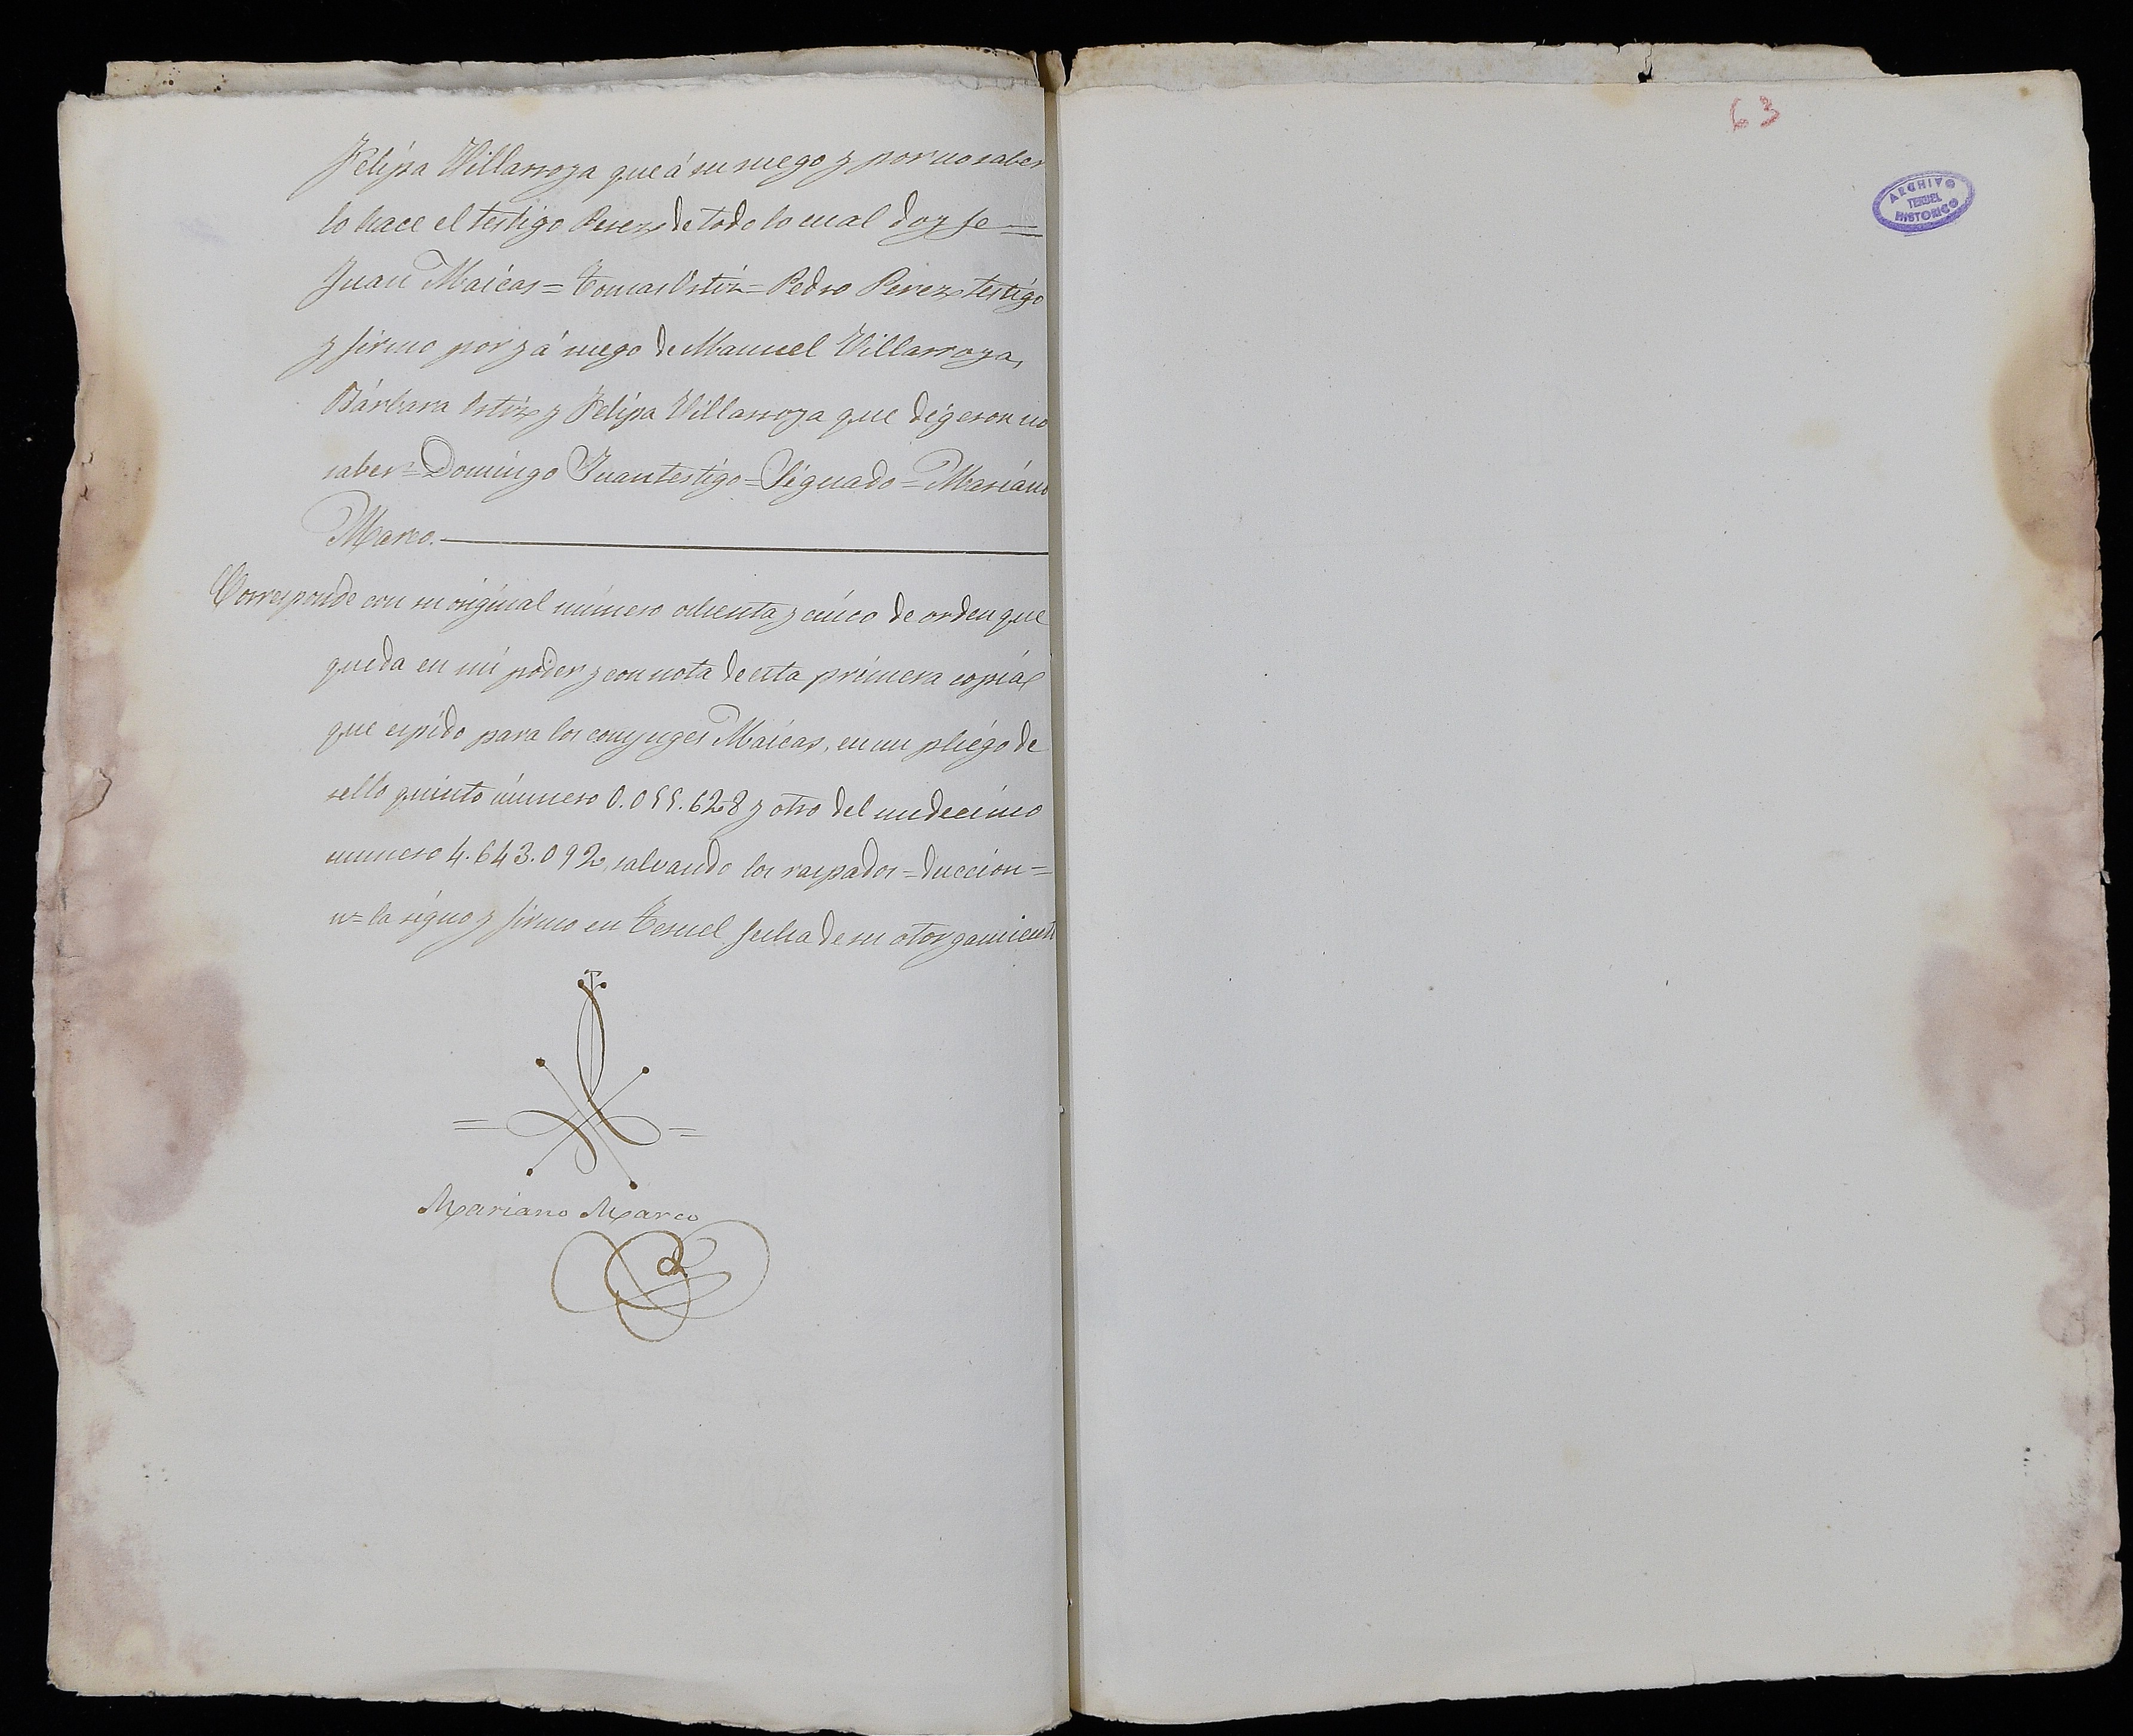 Felipa Villarroya que á su ruego y por no saber
lo hace el testigo Perez de todo lo cual doy fe=
Juan Maicas= Tomas Ortiz= Pedro Perez testigo
y firmo por y á ruego de Manuel Villarroya,
Bárbara Ortiz y Felipa Villarroya que digeron no
saber= Domingo Juan testigo= Signado= Mariano
Marco.
Corresponde con su original número ochenta y cinco de orden que
queda en mi poder y con nota de esta primera copia
que espido para los conyuges Maicas, en un pliego de
sello quinto número 0.055.628 y otro del undecimo
numero 4.643.092, salvando los raspados= duccion=
n= la signo y firmo en Teruel fecha de su otorgamiento
Mariano Marco
63
ARCHIVO
TERUEL
HISTORICO